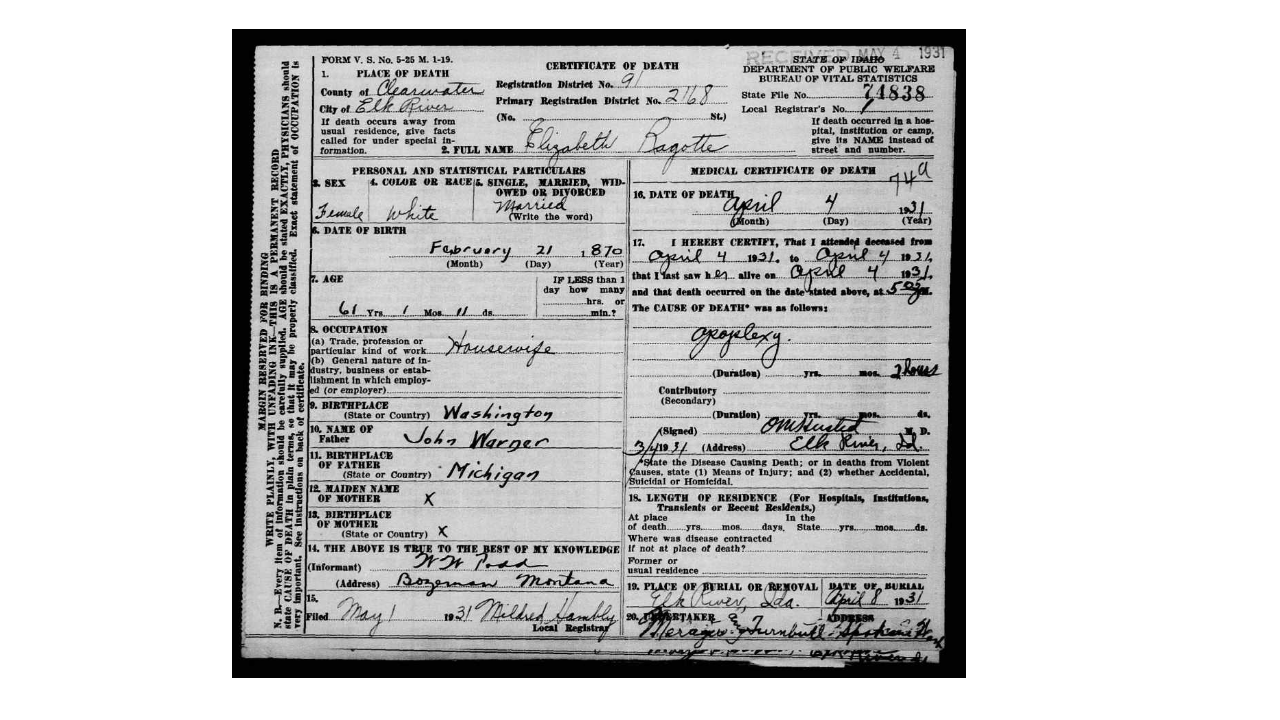 RECEIVED MAY 4 1931
FORM V. S. No. 5-25 M. 1-19.
CERTIFICATE OF DEATH
STATE OF IDAHO
DEPARTMENT OF PUBLIC WELFARE
BUREAU OF VITAL STATISTICS
1. PLACE OF DEATH
County of Clearwater
City of Elk River
If death occurs away from
usual residence, give facts
called for under special in-
formation.
Registration District No. 91
Primary Registration District No. 2168
(No. St.)
State File No. 74838
Local Registrar's No. 1
If death occurred in a hos-
pital, institution or camp,
give its NAME instead of
street and number.
2. FULL NAME Elizabeth Ragotte
PERSONAL AND STATISTICAL PARTICULARS
3. SEX
Female
4. COLOR OR RACE
White
5. SINGLE, MARRIED, WID-
OWED OR DIVORCED
Married
(Write the word)
6. DATE OF BIRTH
February 21 1870
(Month) (Day) (Year)
7. AGE
61 Yrs. 1 Mos. 11 ds.
IF LESS than 1
day how many
hrs. or
min.?
8. OCCUPATION
(a) Trade, profession or
particular kind of work Housewife
(b) General nature of in-
dustry, business or estab-
lishment in which employ-
ed (or employer)
9. BIRTHPLACE
(State or Country) Washington
10. NAME OF
Father John Warner
11. BIRTHPLACE
OF FATHER
(State or Country) Michigan
12. MAIDEN NAME
OF MOTHER X
13. BIRTHPLACE
OF MOTHER
(State or Country) X
14. THE ABOVE IS TRUE TO THE BEST OF MY KNOWLEDGE
(Informant) W W Todd
(Address) Bozeman Montana
15.
Filed May 1 1931 Mildred Hambly
Local Registrar
MEDICAL CERTIFICATE OF DEATH
74a
16. DATE OF DEATH
April 4 1931
(Month) (Day) (Year)
17. I HEREBY CERTIFY, That I attended deceased from
April 4 1931, to April 4 1931,
that I last saw her alive on April 4 1931,
and that death occurred on the date stated above, at m.
The CAUSE OF DEATH* was as follows:
apoplexy.
(Duration) yrs. mos. 2 hours
Contributory
(Secondary)
(Duration) yrs. mos. ds.
(Signed) M. D.
1931 (Address) Elk River, Id.
*State the Disease Causing Death; or in deaths from Violent
Causes, state (1) Means of Injury; and (2) whether Accidental,
Suicidal or Homicidal.
18. LENGTH OF RESIDENCE (For Hospitals, Institutions,
Transients or Recent Residents.)
At place In the
of death yrs. mos. days. State yrs. mos. ds.
Where was disease contracted
if not at place of death?
Former or
usual residence
19. PLACE OF BURIAL OR REMOVAL
Elk River, Ida.
DATE OF BURIAL
April 8 1931
20. UNDERTAKER ADDRESS
Turnbull Spokane
MARGIN RESERVED FOR BINDING
WRITE PLAINLY, WITH UNFADING INK—THIS IS A PERMANENT RECORD
N. B.—Every item of information should be carefully supplied. AGE should be stated EXACTLY, PHYSICIANS should
state CAUSE OF DEATH in plain terms, so that it may be properly classified. Exact statement of OCCUPATION is
very important. See instructions on back of certificate.